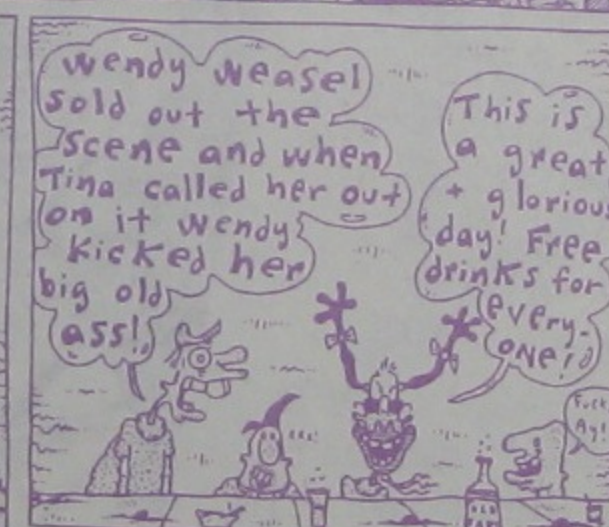 Wendy Weasel
sold out the
scene and when
Tina called her out
on it Wendy
kicked her
big old
ass!
This is
a great
+ glorious
day! Free
drinks for
every-
one!
Fuck